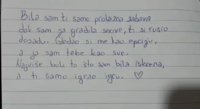 Bila sam ti samo prolazna zabava
dok sam ja gradila snove, ti si rušio
dosadu. Gledao si me kao opciju,
a ja sam tebe kao sve.
Najviše boli to što sam bila iskrena,
a ti samo igrao igru. ♡